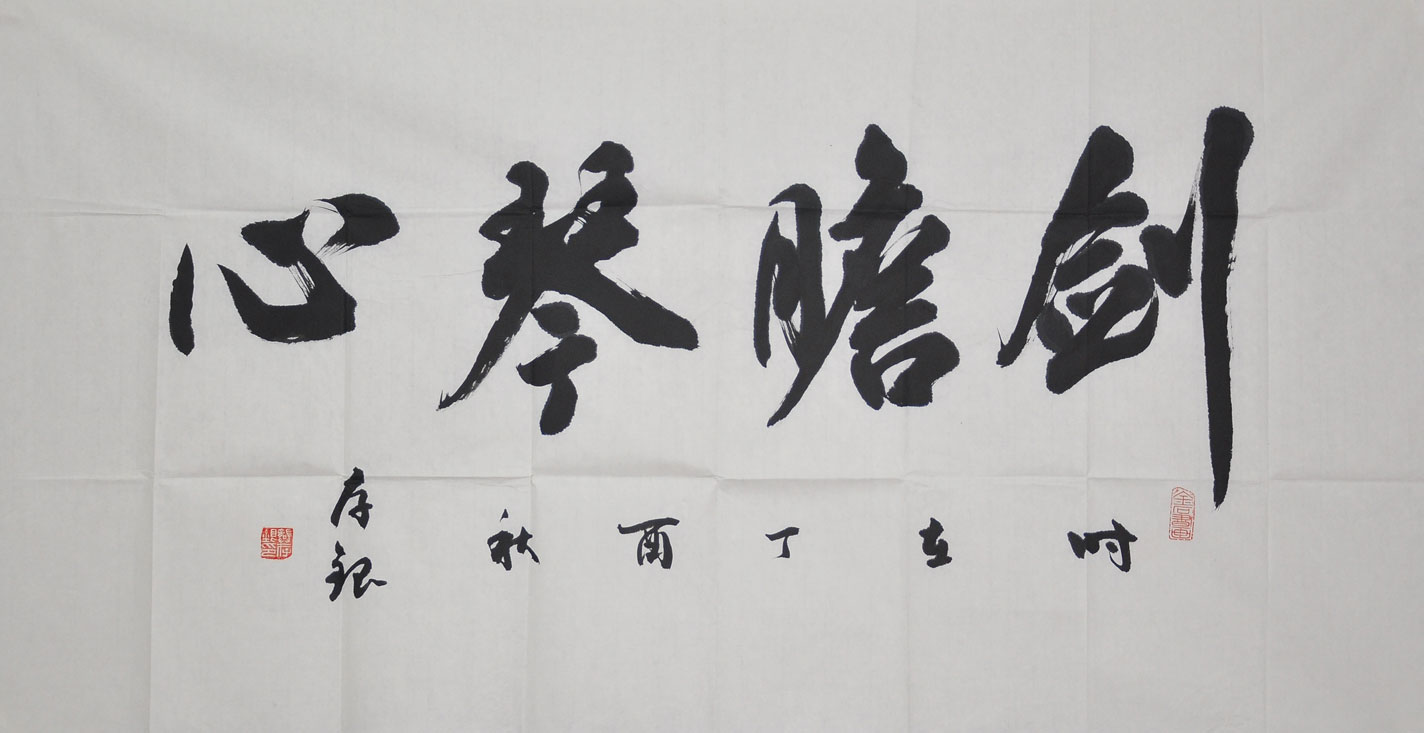 剑胆琴心
时在丁酉秋
存银